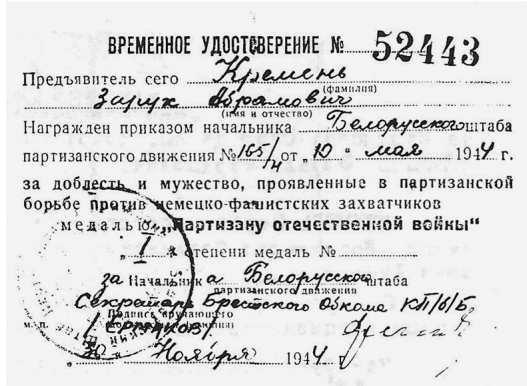 ВРЕМЕННОЕ УДОСТОВЕРЕНИЕ № 52443
Предъявитель сего Кремень
(фамилия)
Зарук Абрамович
(имя и отчество)
Награжден приказом начальника Белорусского штаба
партизанского движения № 165/н от „10“ мая 1944 г.
за доблесть и мужество, проявленные в партизанской
борьбе против немецко-фашистских захватчиков
медалью „Партизану отечественной войны“
„I“ й степени медаль №
за Начальника Белорусского штаба
партизанского движения
Секретарь Брестского Обкома КП/б/Б
Подпись вручающего
м. п.
Ноября 1944 г.